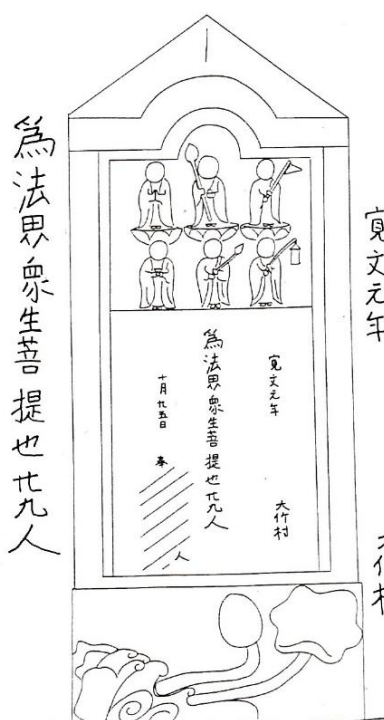 寛文元年
大竹村
寛文元年
大竹村
爲法思衆生菩提也廿九人
十月廿五日
奉
人
爲法思衆生菩提也廿九人